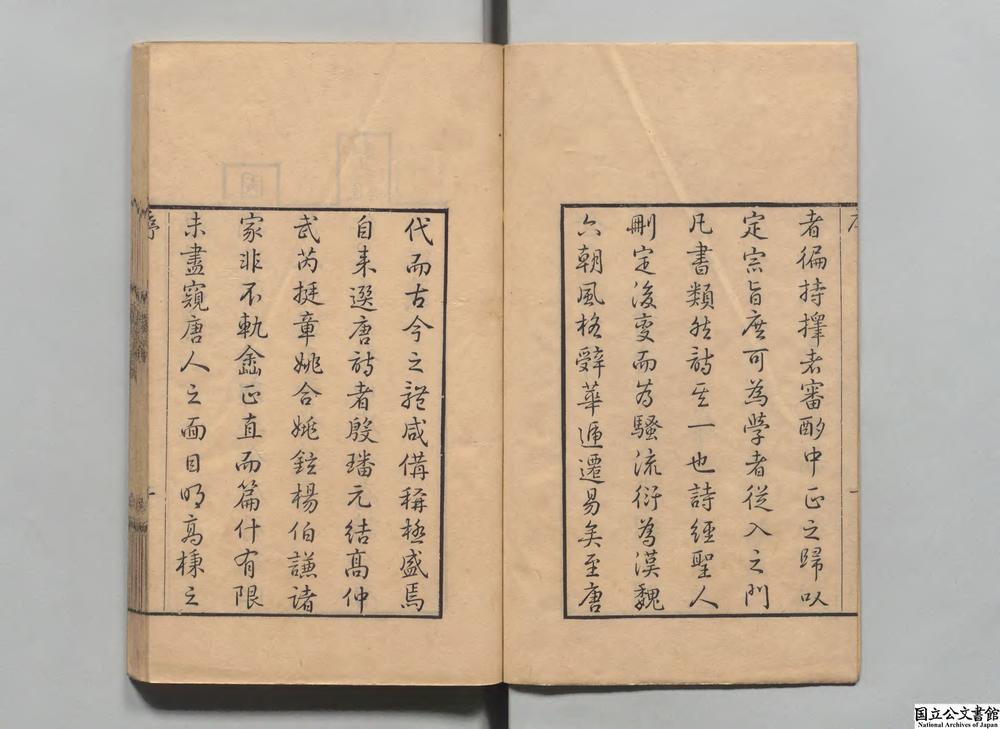 者徧持擇者審酌中正之歸以
定宗旨庶可為學者從入之門
凡書類然詩其一也詩經聖人
刪定後變而為騷流衍為漢魏
六朝風格辭華遞遷易矣至唐
代而古今之體咸備稱極盛焉
自來選唐詩者殷璠元結高仲
武芮挺章姚合姚鉉楊伯謙諸
家非不軌塗正直而篇什有限
未盡窺唐人之面目明高棅之
序
国立公文書館
National Archives of Japan